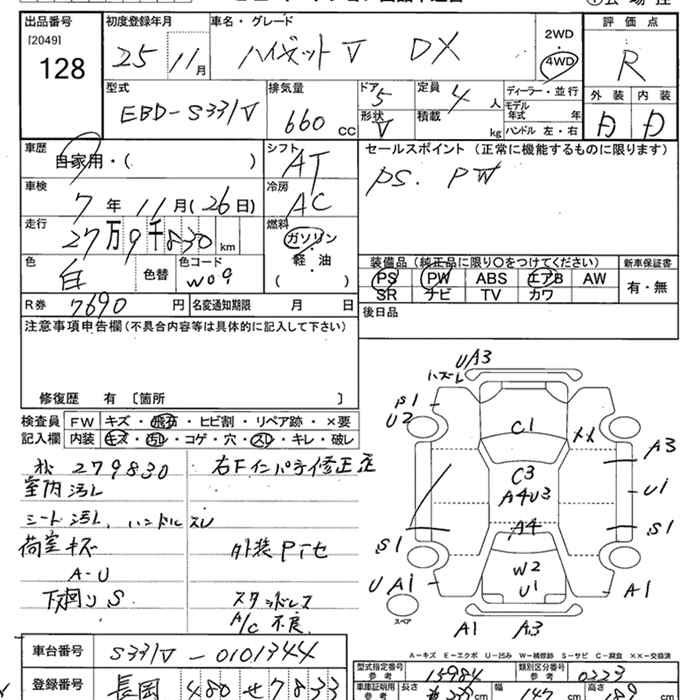 出品番号 初度登録年月 車名・グレード 評価点
[2049]
128
25 11月 ハイゼットV DX 2WD 4WD R
外装 内装
型式 排気量 ドア 定員 ディーラー・並行
EBD-S331V 660 CC 5 4人
モデル年式 年
形状 積載
V kg ハンドル 左・右
車歴 シフト セールスポイント (正常に機能するものに限ります)
自家用・( ) AT PS. PW
車検 冷房
7年11月(26日) AC
走行 燃料
27万9千830km ガソリン
軽・油
( )
装備品 (純正品に限り○をつけてください) 新車保証書
PS PW ABS エアB AW 有・無
SR ナビ TV カワ
色 色替 色コード
白 W09
R券 7690円 名変通知期限 月 日
後日品
注意事項申告欄 (不具合内容等は具体的に記入して下さい)
修復歴 有 〔箇所 〕
検査員 FW キズ・飛石・ヒビ割・リペア跡・×要
記入欄 内装 キズ・汚れ・コゲ・穴・スレ・キレ・破レ
279830 右Fインパネ修正
室内汚レ
シート汚レ、ハンドルスレ
荷室キズ 外装
A-U
下回りS スタッドレス
A/C不良
UA3
ハズレ
S1
U2
C1
××
A3
C3
A4U3
U1
A4
S1
S1
W2
U1
UA1
A1
スペア
A1
A3
A-キズ E-エクボ U-凹み W-補修跡 S-サビ C-腐食 ××-交換済
車台番号 S331V-0101344
型式指定番号 参考 15984 類別区分番号 参考 0223
登録番号 長岡 480 せ 7833
車庫証明用 参考 長さ cm 幅 147 cm 高さ cm